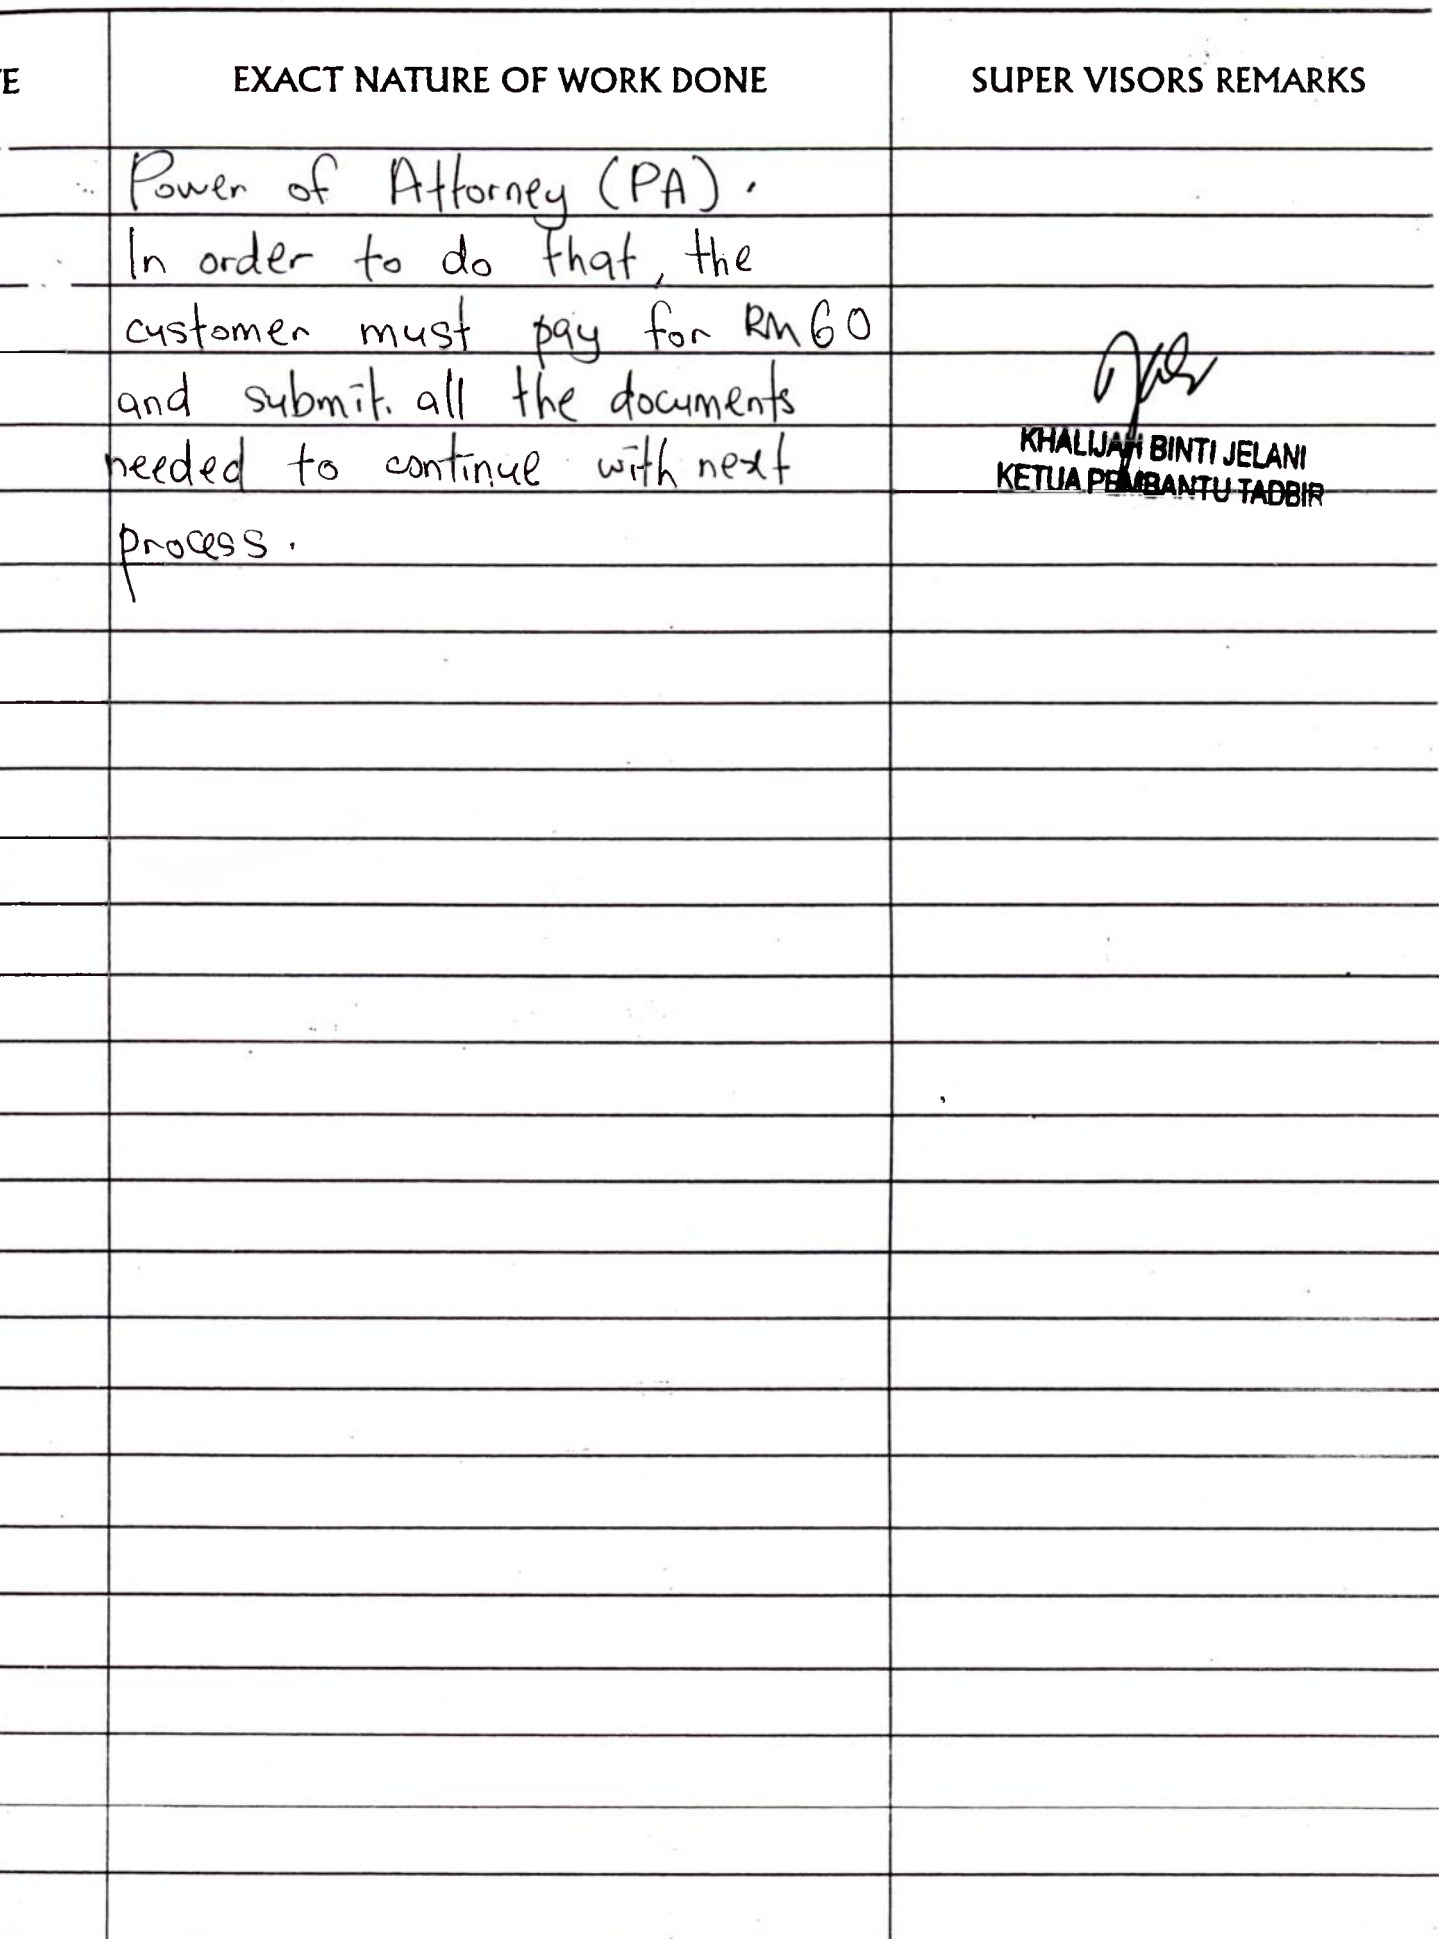 E EXACT NATURE OF WORK DONE SUPER VISORS REMARKS
Power of Attorney (PA).
In order to do that, the
customer must pay for RM60
and submit. all the documents
needed to continue with next
process.
KHALIJAH BINTI JELANI
KETUA PEMBANTU TADBIR